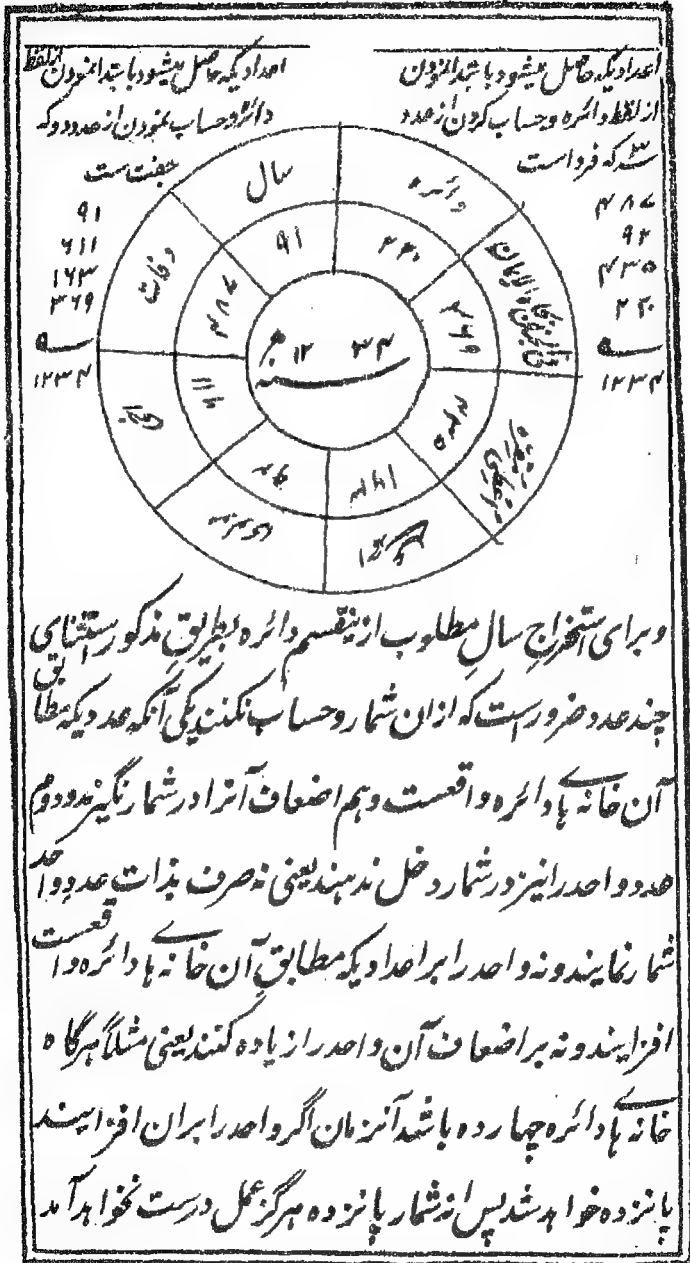 اعدادیکه حاصل میشود بابتدا نمودن
از لفظ دائره و حساب کردن از عدد
سه که فرد است
۴۸۷
۹۲
۴۳۵
۲۲۰
۱۲۳۴
اعدادیکه حاصل میشود بابتدا نمودن از لفظ
دائره و حساب نمودن از عدد دو که
جفت ست
۹۱
۶۱۱
۱۶۳
۳۶۹
۱۲۳۴
دائره
سال
وفات
۲۲۰
۹۱
۴۸۷
۶۱۱
۹۲
۱۶۳
۴۳۵
۳۶۹
۱۲۳۴ هـ
و برای استخراج سال مطلوب ازینقسم دائره بطریق مذکور استثنای
چند عدد ضرورست که ازان شمار و حساب نکنند یکی آنکه عددیکه مطابق
آن خانه هاے دائره واقعست و هم اضعاف آنرا در شمار نگیرند دوم
عدد واحد را نیز در شمار دخل ندهند یعنی نه صرف بذات عدد واحد
شمار نمایند و نه واحد را بر اعدادیکه مطابق آن خانه هاے دائره واقعست
افزایند و نه بر اضعاف آن واحد را زیاده کنند یعنی مثلاً هرگاه
خانه هاے دائره چهارده باشد آنزمان اگر واحد را بران افزایند
پانزده خواهد شد پس از شمار پانزده هرگز عمل درست نخواهد آمد